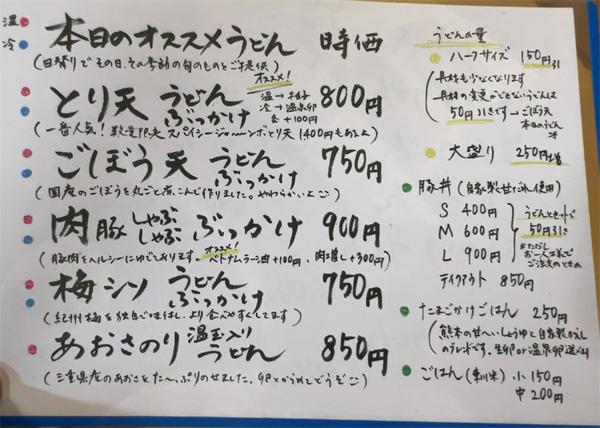 温
冷
本日のオススメうどん 時価
(日替りでその日、その季節の旬のものをご提供)
オススメ!
とり天 うどん ぶっかけ 800円
温→柚子
冷→温泉卵
各+100円
(一番人気! 数量限定 スパイシージャ〜ンボとり天 1400円もあるよ)
ごぼう天 うどん ぶっかけ 750円
(国産のごぼうを丸ごと煮こんで作りました。やわらかいよ)
肉 豚しゃぶしゃぶ ぶっかけ 900円
オススメ!
(豚肉をヘルシーにゆでてあります。ベトナムラー油+100円、肉増し+300円)
梅シソ うどん ぶっかけ 750円
(紀州梅を独自で味付けし、より食べやすくしてます)
あおさのり 温玉入り うどん 850円
(三重県産のあおさをた〜っぷりのせました。卵とからめてどうぞ)
うどんの量
ハーフサイズ 150円引
(具材も少なくなります
一具材の変更ができないうどんは
50円引きです→ごぼう天
本日のうどん
大盛り 250円増
豚丼 (自家製甘け油使用)
S 400円
M 600円
L 900円
うどんとセットで
50円引き
※ただし
お一人様で
ご注文のときのみ
テイクアウト 850円
たまごかけごはん 250円
(熊本の甘〜いしょうゆと自家製かえし
のブレンドです。生卵or温泉卵選べます)
ごはん 小 150円
中 200円